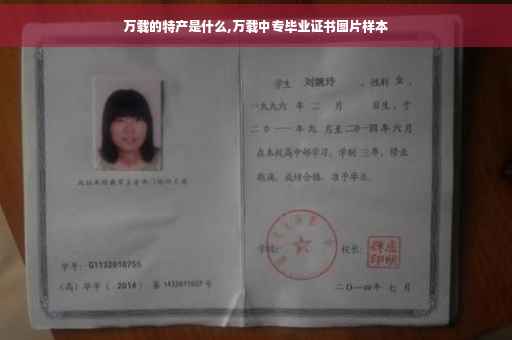 万载的特产是什么,万载中专毕业证书图片样本
学生 刘婉玲 ，性别 女 ，
一九九六 年 二 月 日生，于
二〇一一年九 月至二〇一四年六月
在本校高中部学习，学制 三年，修业
期满，成绩合格，准予毕业。
学号：G1132010755
（高）毕字（ 2014 ）第 1432011607 号
学校：
校长：
二〇一四年 七 月